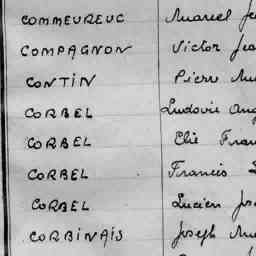 COMMEUREUC Marcel
COMPAGNON Victor
CONTIN Pierre
CORBEL Ludovic
CORBEL Elie
CORBEL Francis
CORBEL Lucien
CORBINAIS Joseph